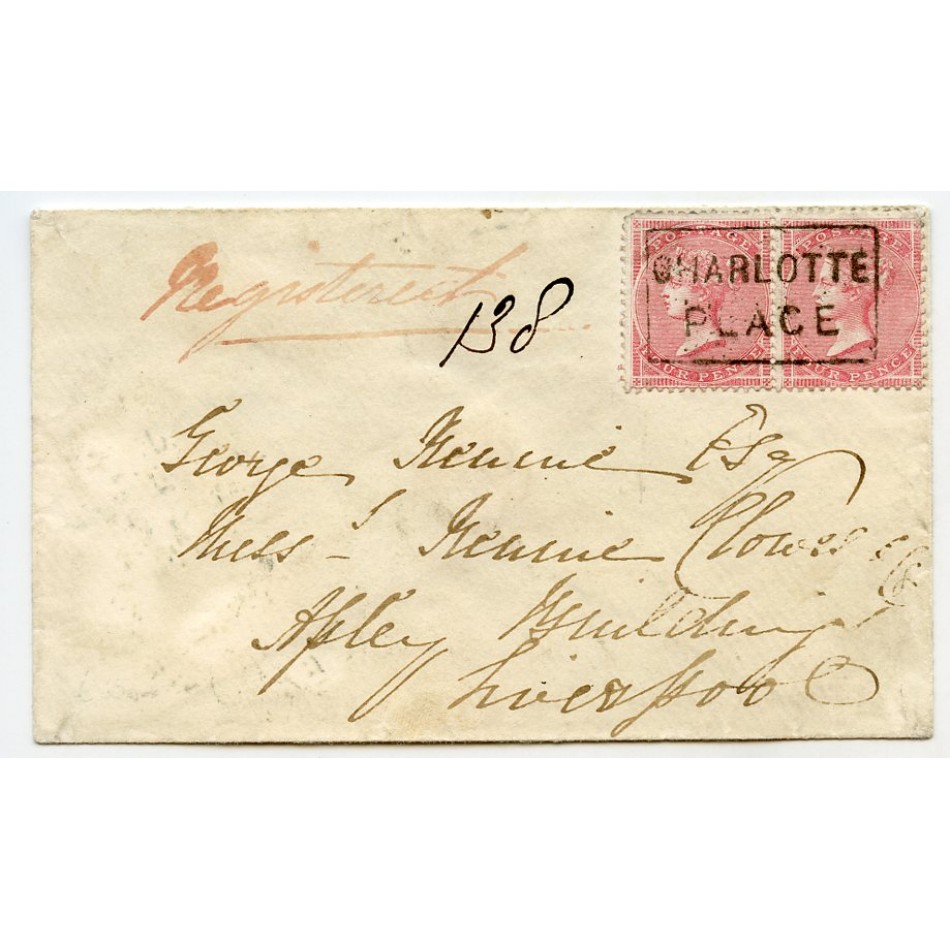 Registered
138
POSTAGE POSTAGE
CHARLOTTE
PLACE
FOUR PENCE FOUR PENCE
George Rennie Esq
Mess rs Rennie Clowes & Co
Apsley Buildings
Liverpool